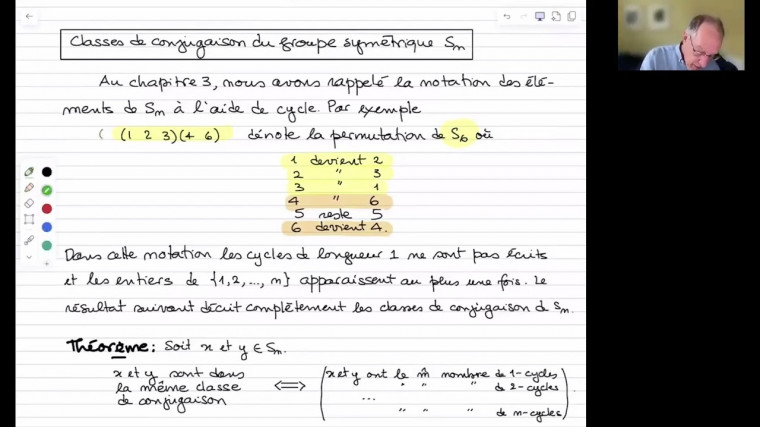 Classes de conjugaison du groupe symétrique Sₙ
Au chapitre 3, nous avons rappelé la notation des élé-
ments de Sₙ à l'aide de cycle. Par exemple
( (1 2 3)(4 6) dénote la permutation de S₆ où
1 devient 2
2 " 3
3 " 1
4 " 6
5 reste 5
6 devient 4.
Dans cette notation les cycles de longueur 1 ne sont pas écrits
et les entiers de {1,2,..., n} apparaissent au plus une fois. Le
résultat suivant décrit complètement les classes de conjugaison de Sₙ.
Théorème: Soit x et y ∈ Sₙ.
x et y sont dans
la même classe
de conjugaison
⟺
(x et y ont le m̂ nombre de 1-cycles
" " " de 2-cycles
...
" " " de n-cycles)